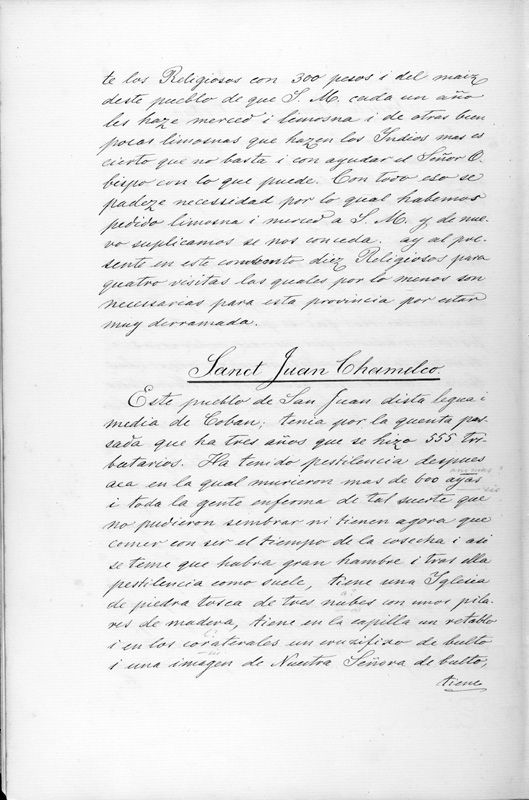 te los Religiosos con 300 pesos i del maiz
deste pueblo de que S. M. cada un año
les haze merced i limosna i de otras bien
pocas limosnas que hazen los Indios mas es
cierto que no basta i con ayudar el Señor O.
bispo con lo que puede. Con todo eso se
padeze necessidad por lo qual habemos
pedido limosna i merced a S. M. y de nue-
vo suplicamos se nos conceda. ay al pre-
sente en este combento diez Religiosos para
quatro visitas las quales por lo menos son
necesarias para esta provincia por estar
muy derramada.
Sanct Juan Chamelco.
Este pueblo de San Juan dista legua i
media de Coban; tenia por la quenta pas
sada que ha tres años que se hizo 555 tri-
butarios. Ha tenido pestilencia despues
aca en la qual murieron mas de 600 ayas
i toda la gente enferma de tal suerte que
no pudieron sembrar ni tienen agora que
comer con ser el tiempo de la cosecha i asi
se teme que habra gran hambre i tras ella
pestilencia como suele, tiene una Iglesia
de piedra tosca de tres nabes con unos pila-
res de madera, tiene en la capilla un retablo
i en los coraterales un cruzifixo de bulto
i una imagen de Nuestra Señora de bulto,
tiene